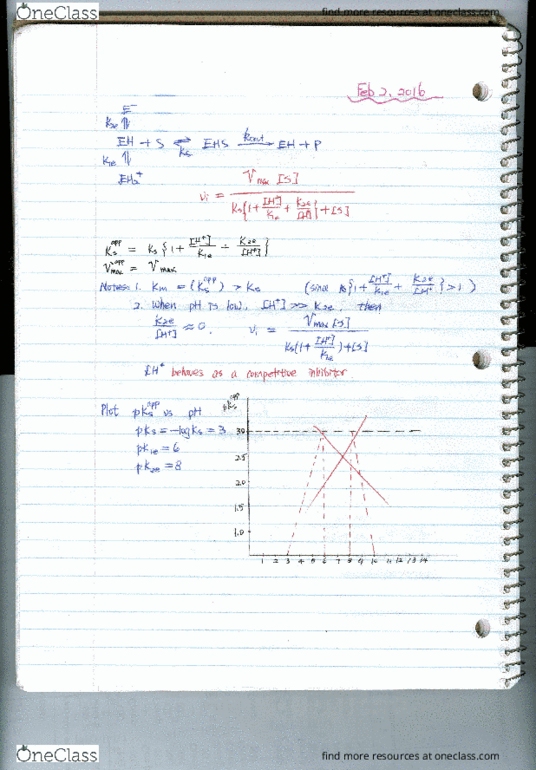 OneClass
find more resources at oneclass.com
Feb 2, 2016
E⁻
K₂e ⇅
EH + S ⇌ EHS —kcat→ EH + P
Ks
K₁e ⇅
EH₂⁺
vi = Vmax [S] / Ks{1 + [H⁺]/K₁e + K₂e/[H⁺]} + [S]
Ks^app = Ks {1 + [H⁺]/K₁e + K₂e/[H⁺]}
Vmax^app = Vmax.
Notes: 1. Km = (Ks^app) > Ks (since {1 + [H⁺]/K₁e + K₂e/[H⁺]} > 1)
2. When pH is low, [H⁺] >> K₂e, then
K₂e/[H⁺] ≈ 0, vi = Vmax [S] / Ks(1 + [H⁺]/K₁e) + [S]
H⁺ behaves as a competitive inhibitor
Plot pKs^app vs pH
pKs = -logKs = 3
pK₁e = 6
pK₂e = 8
pKs^app
3.0
2.5
2.0
1.5
1.0
1 2 3 4 5 6 7 8 9 10 11 12 13 14
OneClass
find more resources at oneclass.com